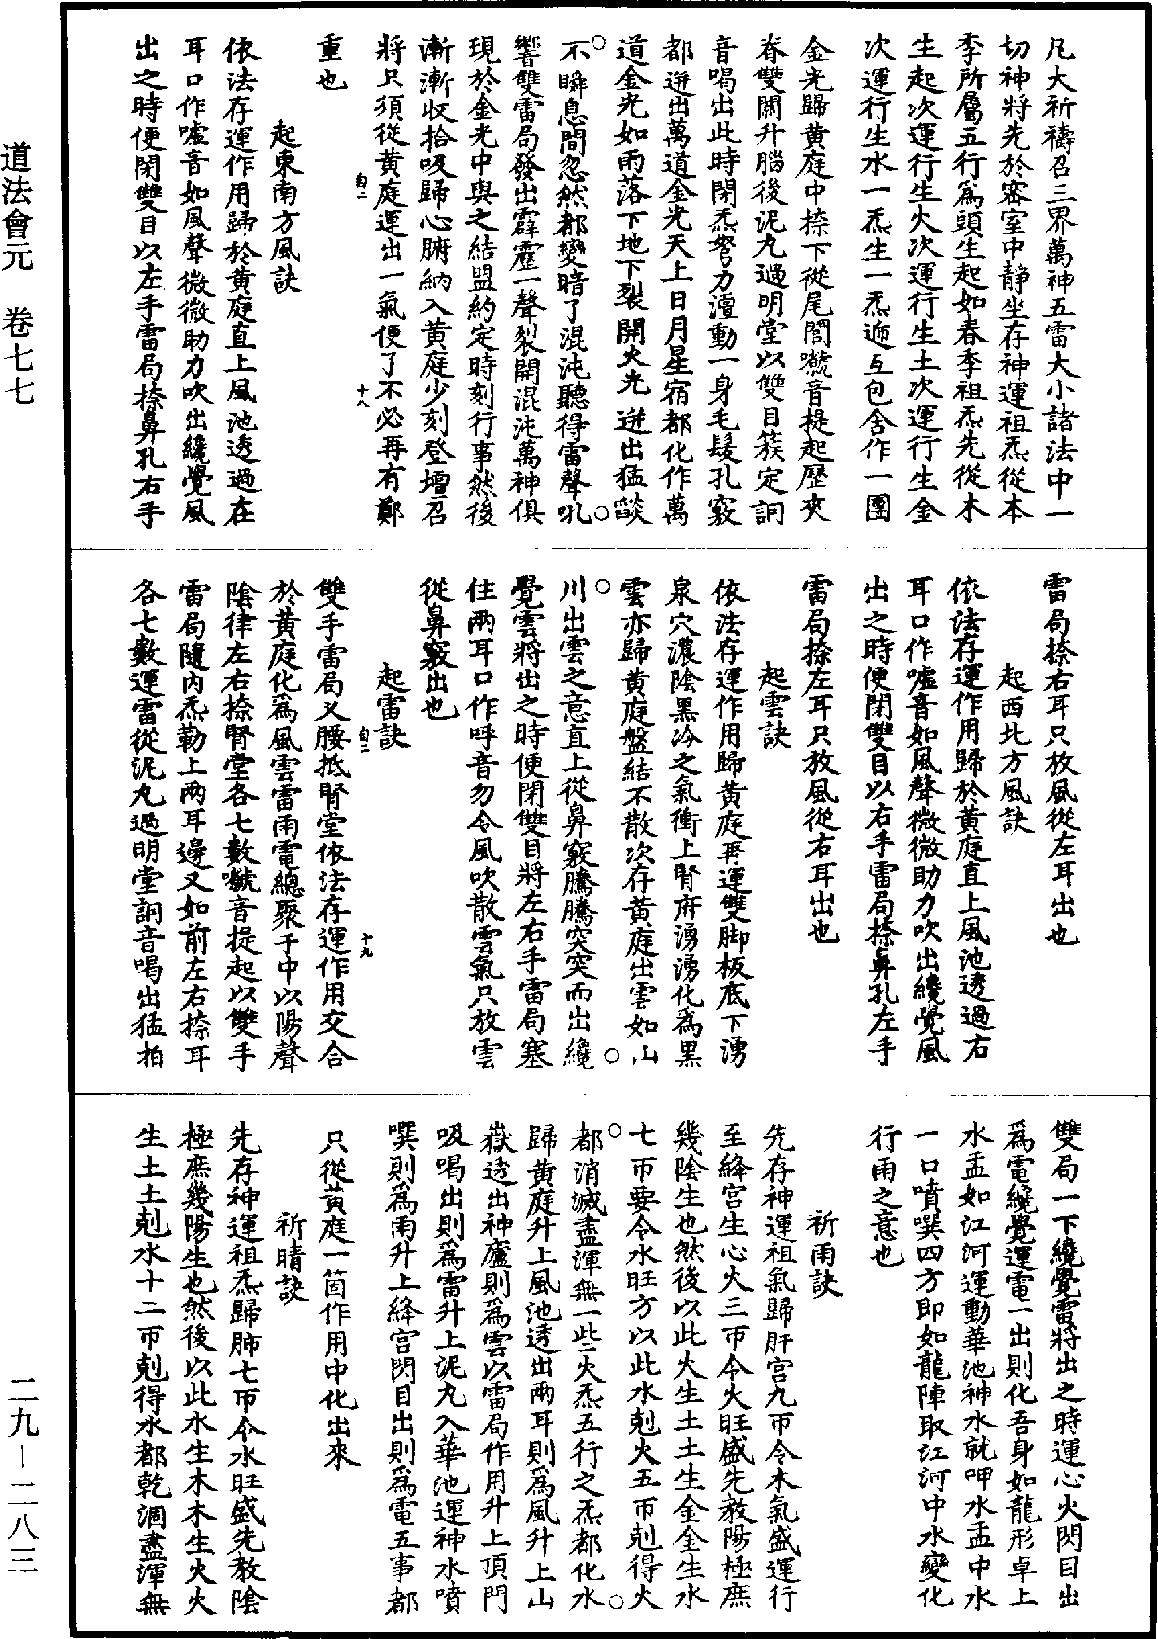 凡大祈禱召三界萬神五雷大小諸法中一
切神將先於密室中静坐存神運祖炁從本
季所屬五行爲頭生起如春季祖炁先從木
生起次運行生火次運行生土次運行生金
次運行生水一炁生一炁遞互包含作一團
金光歸黄庭中捺下從尾閭嚱音提起歷夾
脊雙關升腦後泥丸過明堂以雙目簇定訶
音喝出此時閉炁努力澶動一身毛髮孔竅
都迸出萬道金光天上日月星宿都化作萬
道金光如雨落下地下裂開火光迸出猛燄
不瞬息間忽然都變暗了混沌聽得雷聲吼
響雙雷局發出霹靂一聲裂開混沌萬神俱
現於金光中與之結盟約定時刻行事然後
漸漸收拾吸歸心腑納入黄庭少刻登壇召
將只須從黄庭運出一氣便了不必再有鄭
重也
起東南方風訣
依法存運作用歸於黄庭直上風池透過在
耳口作噓音如風聲微微助力吹出纔覺風
出之時便閉雙目以左手雷局捺鼻孔右手
雷局捺右耳只放風從左耳出也
起西北方風訣
依法存運作用歸於黄庭直上風池透過右
耳口作噓音如風聲微微助力吹出纔覺風
出之時便閉雙目以右手雷局捺鼻孔左手
雷局捺左耳只放風從右耳出也
起雲訣
依法存運作用歸黄庭再運雙脚板底下湧
泉穴濃陰黑冷之氣衝上腎府湧湧化爲黑
雲亦歸黄庭盤結不散次存黄庭出雲如山
川出雲之意直上從鼻竅騰騰突突而出纔
覺雲將出之時便閉雙目將左右手雷局塞
住兩耳口作呼音勿令風吹散雲氣只放雲
從鼻竅出也
起雷訣
雙手雷局乂腰抵腎堂依法存運作用交合
於黄庭化爲風雲雷雨電總聚于中以陽聲
陰律左右捺腎堂各七數嚱音提起以雙手
雷局隨内炁勒上兩耳邊又如前左右捺耳
各七數運雷從泥丸過明堂訶音喝出猛拍
雙局一下纔覺雷將出之時運心火閃目出
爲電纔覺運電一出則化吾身如龍形卓上
水盂如江河運動華池神水就呷水盂中水
一口噴噀四方即如龍陣取江河中水變化
行雨之意也
祈雨訣
先存神運祖氣歸肝宫九帀令木氣盛運行
至絳宫生心火三帀令火旺盛先教陽極庶
幾陰生也然後以此火生土土生金金生水
七帀要令水旺方以此水剋火五帀剋得火
都消滅盡渾無一些火炁五行之炁都化水
歸黄庭升上風池透出兩耳則爲風升上山
嶽透出神廬則爲雲以雷局作用升上頂門
吸喝出則爲雷升上泥丸入華池運神水噴
噀則爲雨升上絳宫閃目出則爲電五事都
只從黄庭一箇作用中化出來
祈晴訣
先存神運祖炁歸肺七帀令水旺盛先教陰
極庶幾陽生也然後以此水生木木生火火
生土土剋水十二帀剋得水都乾涸盡渾無
自二
十八
自二
十九
道法會元 卷七七
二九－二八三